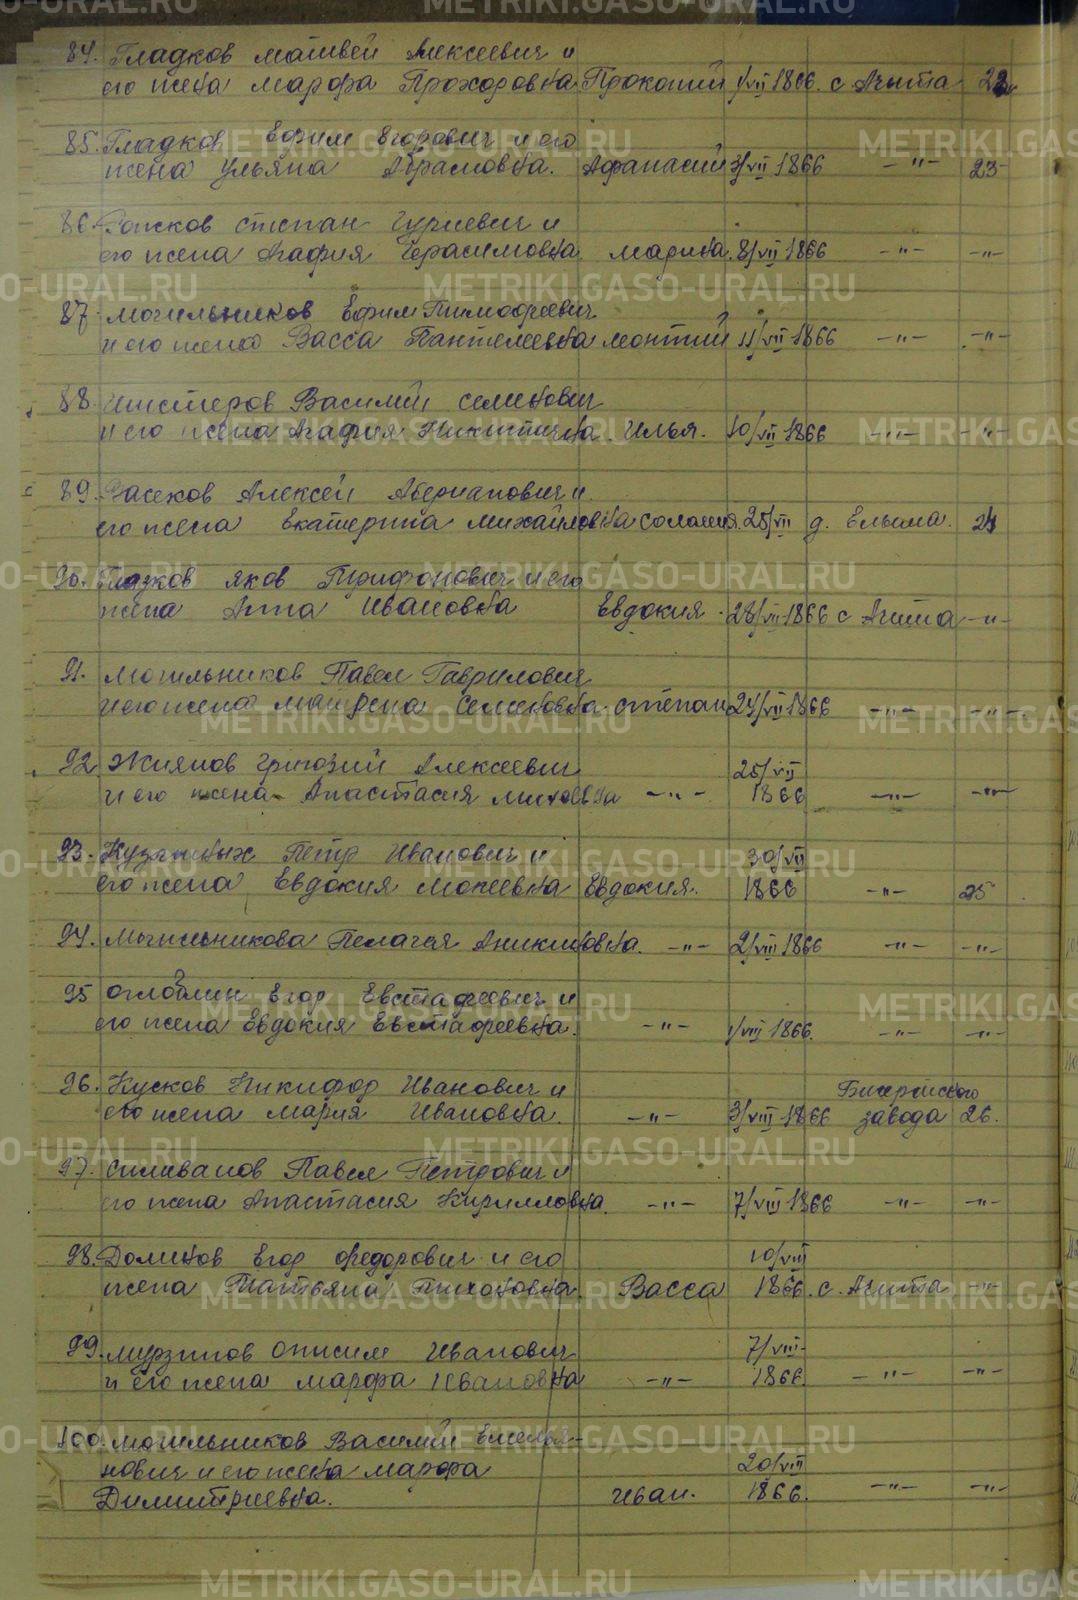 84. Гладков Матвей Алексеевич и
его жена Марфа Прохоровна Прокопий 1/VII 1866 с Ачита 22
85. Гладков Ефим Егорович и его
жена Ульяна Абрамовна. Афанасий 3/VII 1866 -"- 23
86. Степан Гуриевич и
его жена Агафия Герасимовна Марина. 8/VII 1866 -"- -"-
87. Могильников Ефим Тимофеевич
и его жена Васса Пантелеевна Монтий 11/VII 1866 -"- -"-
88. Василий Семенович
и его жена Агафия Никитична. Илья. 10/VII 1866 -"- -"-
89. Алексей Аверианович и
его жена Екатерина Михайловна 25/VII д. Ельыма. 24
90. Яков Трифонович и его
жена Анна Ивановна Евдокия. 28/VII 1866 с Ачита -"-
91. Могильников Павел Гаврилович
и его жена Матрена Семеновна Степан 24/VII 1866 -"- -"-
92 Григорий Алексеевич 25/VII
и его жена Анастасия -"- 1866 -"- -"-
93. Петр Иванович и 30/VII
его жена Евдокия Мокеевна Евдокия. 1866 -"- 25
94. Могильникова Пелагея -"- 2/VIII 1866 -"- -"-
95 Оглоблин Егор Евстафеевич и
его жена Евдокия Евстафеевна. -"- 1/VIII 1866. -"- -"-
96. Кусков Никифор Иванович и Бисерского
его жена Мария Ивановна. -"- 3/VIII 1866 завода 26.
97. Силиванов Павел Петрович и
его жена Анастасия Кирилловна. -"- 7/VIII 1866 -"- -"-
98. Домнов Егор Федорович и его 10/VIII
жена Татьяна Тихоновна. Васса 1866. с. Ачита -"-
99. Мурзинов Онисим Иванович 7/VIII
и его жена Марфа Ивановна -"- 1866. -"- -"-
100. Могильников Василий Емелья-
нович и его жена Марфа 20/VII
Димитриевна. Иван. 1866. -"- -"-
METRIKI.GASO-URAL.RU